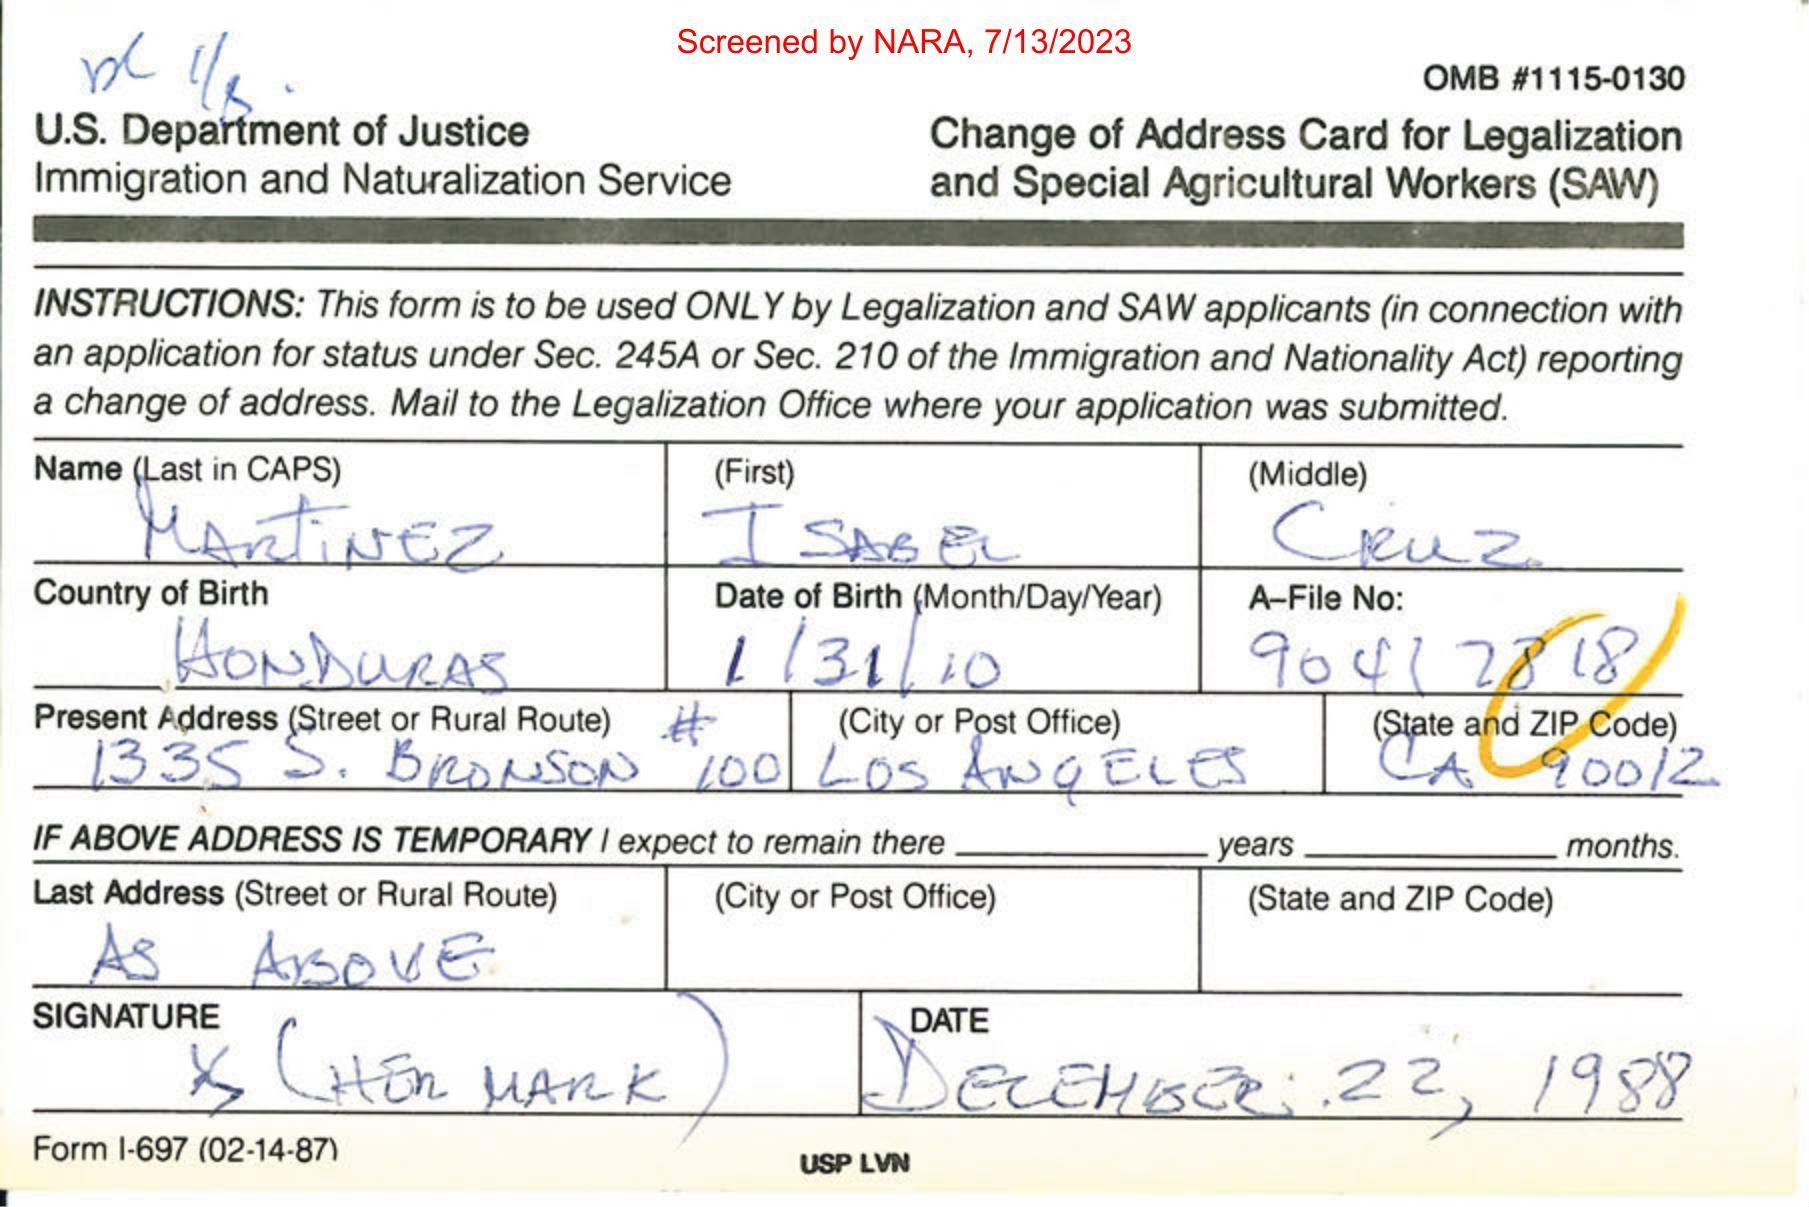 Screened by NARA, 7/13/2023
OMB #1115-0130
U.S. Department of Justice
Immigration and Naturalization Service
Change of Address Card for Legalization
and Special Agricultural Workers (SAW)
INSTRUCTIONS: This form is to be used ONLY by Legalization and SAW applicants (in connection with
an application for status under Sec. 245A or Sec. 210 of the Immigration and Nationality Act) reporting
a change of address. Mail to the Legalization Office where your application was submitted.
Name (Last in CAPS) (First) (Middle)
MARTINEZ ISABEL CRUZ
Country of Birth Date of Birth (Month/Day/Year) A–File No:
HONDURAS 1/31/10 90417818
Present Address (Street or Rural Route) (City or Post Office) (State and ZIP Code)
1335 S. BRONSON #100 LOS ANGELES CA 90012
IF ABOVE ADDRESS IS TEMPORARY I expect to remain there years months.
Last Address (Street or Rural Route) (City or Post Office) (State and ZIP Code)
AS ABOVE
SIGNATURE DATE
X (HER MARK) DECEMBER 22, 1988
Form I-697 (02-14-87)
USP LVN